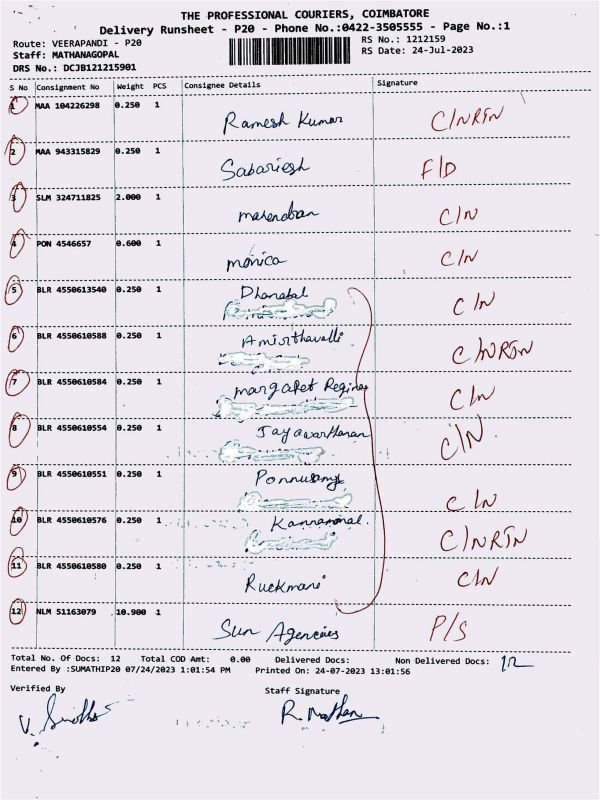 THE PROFESSIONAL COURIERS, COIMBATORE
Delivery Runsheet - P20 - Phone No.:0422-3505555 - Page No.:1
Route: VEERAPANDI - P20 RS No.: 1212159
Staff: MATHANAGOPAL RS Date: 24-Jul-2023
DRS No.: DCJB121215901
S No Consignment No Weight PCS Consignee Details Signature
1 MAA 104226298 0.250 1 Ramesh Kumar C/NRTN
2 MAA 943315829 0.250 1 Sabariesh F/D
3 SLM 324711825 2.000 1 C/N
4 PON 4546657 0.600 1 monica C/N
5 BLR 4550613540 0.250 1 Dhanabal C/N
6 BLR 4550610588 0.250 1 Amirthavalli C/NRTN
7 BLR 4550610584 0.250 1 margaret Regina C/N
8 BLR 4550610554 0.250 1 Jayavarthanan C/N
9 BLR 4550610551 0.250 1 Ponnusamy C/N
10 BLR 4550610576 0.250 1 Kannammal. C/NRTN
11 BLR 4550610580 0.250 1 Ruckmani C/N
12 NLM 51163079 10.900 1 Sun Agencies P/S
Total No. Of Docs: 12 Total COD Amt: 0.00 Delivered Docs: Non Delivered Docs: 12
Entered By :SUMATHIP20 07/24/2023 1:01:54 PM Printed On: 24-07-2023 13:01:56
Verified By Staff Signature
R. Mathan